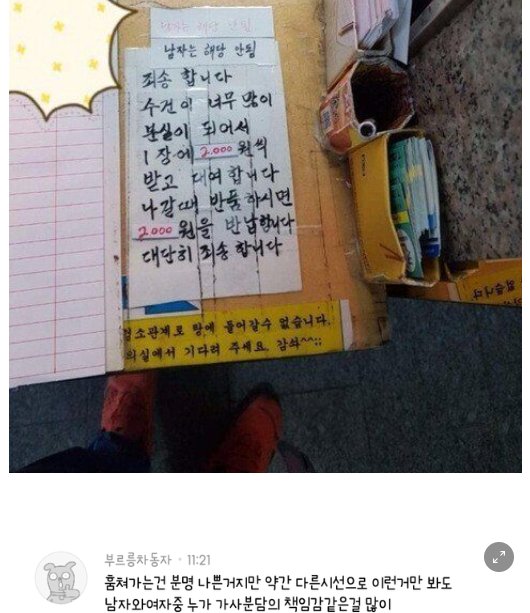 남자는 해당 안됨
남자는 해당 안됨
죄송 합니다
수건이 너무 많이
분실이 되어서
1장에 2.000 원씩
받고 대여 합니다
나갈때 반품 하시면
2.000 원을 반납합니다
대단히 죄송 합니다
청소관계로 탕에 들어갈수 없습니다.
의실에서 기다려 주세요. 감솨^^;;
없습니다
부르릉차동자 · 11:21
훔쳐가는건 분명 나쁜거지만 약간 다른시선으로 이런거만 봐도
남자와여자중 누가 가사분담의 책임감같은걸 많이